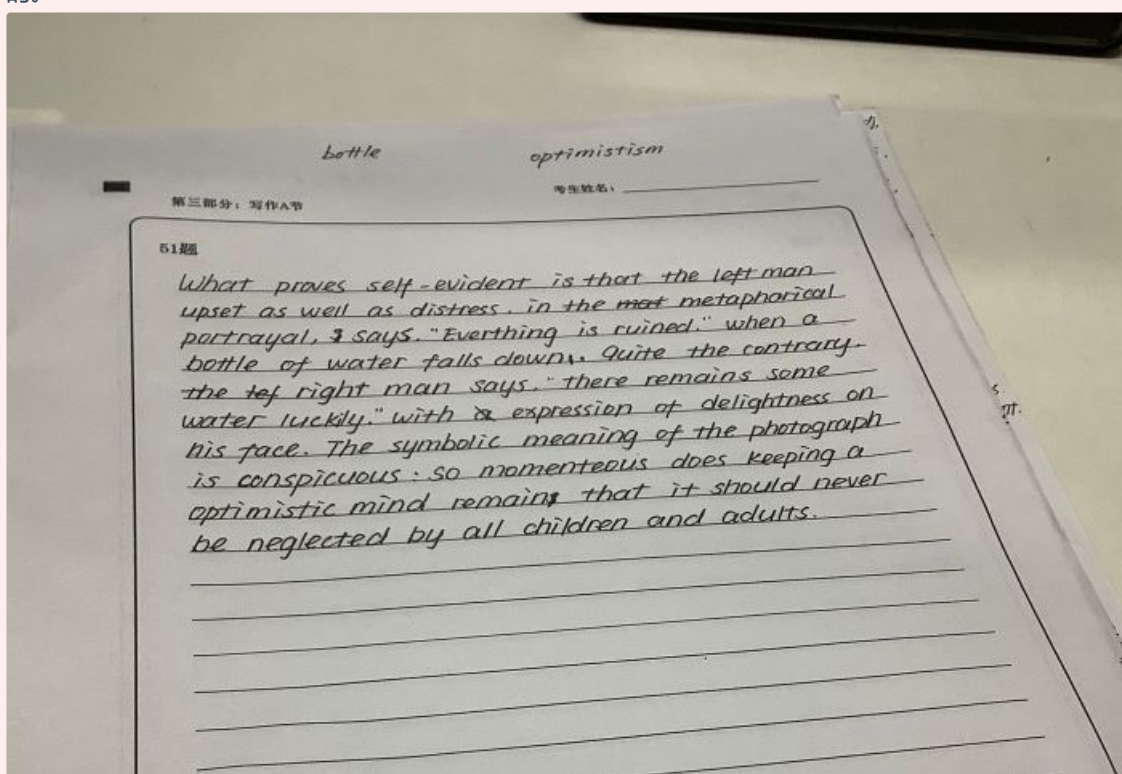 bottle optimistism
考生姓名:
第三部分:写作A节
51题
What proves self-evident is that the left man
upset as well as distress. in the metaphorical
portrayal, says. "Everthing is ruined." when a
bottle of water falls down. Quite the contrary.
the right man says. "there remains some
water luckily." with a expression of delightness on
his face. The symbolic meaning of the photograph
is conspicuous: so momenteous does keeping a
optimistic mind remains that it should never
be neglected by all children and adults.